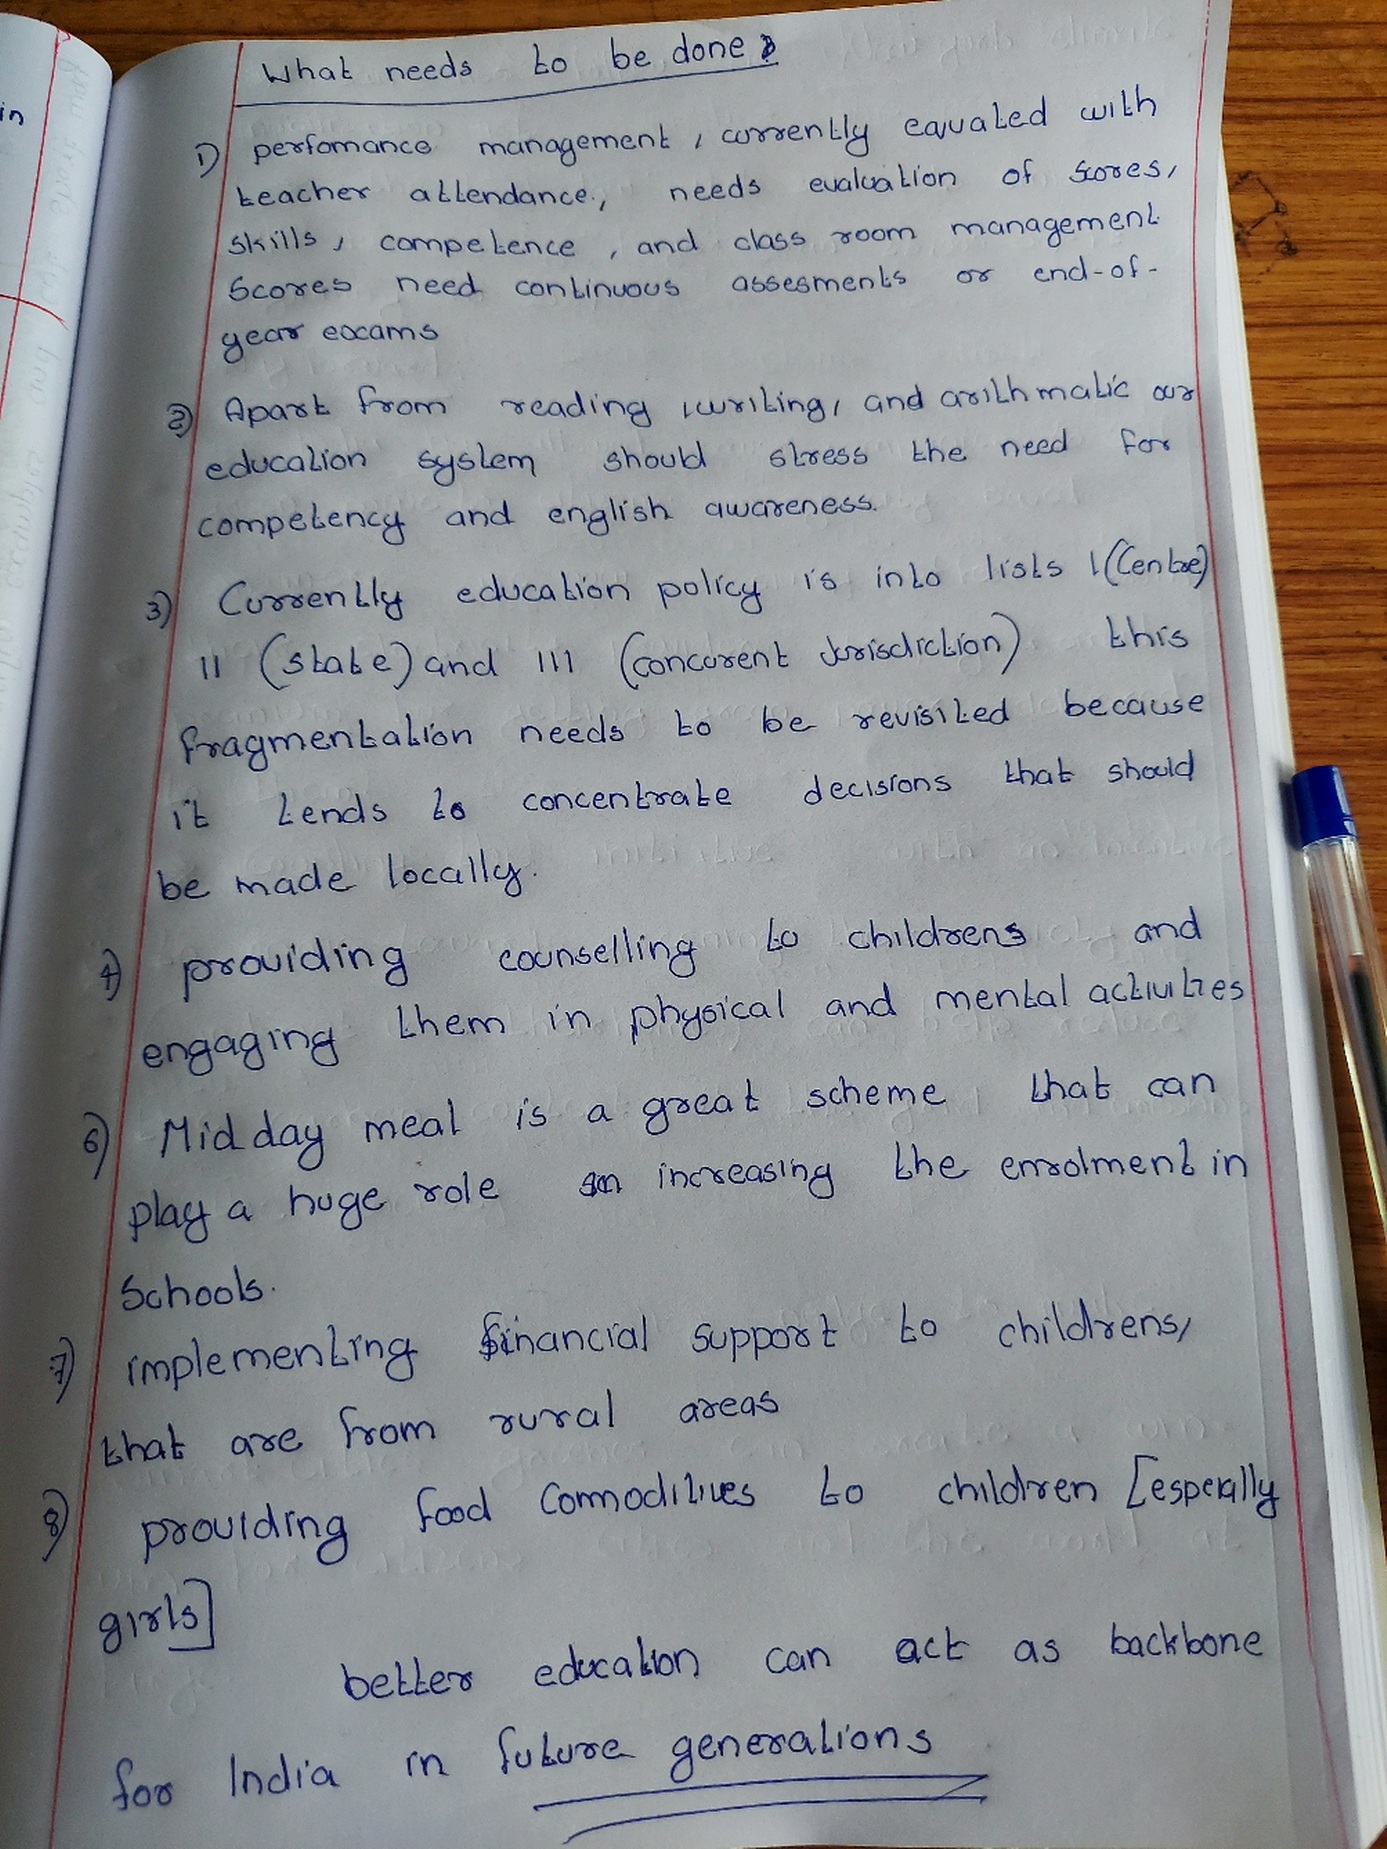 in
What needs to be done?
1) perfomance management, currently equated with
teacher attendance, needs evaluation of scores,
skills, competence, and class room management
Scores need continuous assesments or end-of-
year exams
2) Apart from reading, writing, and arithmatic our
education system should stress the need for
competency and english awareness.
3) Currently education policy is into lists I (Centre)
II (state) and III (concurent Jurisdiction) this
fragmentation needs to be revisited because
it tends to concentrate decisions that should
be made locally.
4) providing counselling to childrens and
engaging them in physical and mental activities
6) Mid day meal is a great scheme that can
play a huge role in increasing the enrolment in
Schools.
7) implementing financial support to childrens,
that are from rural areas
8) providing food commodities to children [especially
girls]
better education can act as backbone
for India in future generations